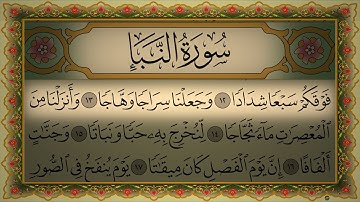 سُورَةُ النَّبَإِ
فَوۡقَكُمۡ سَبۡعٗا شِدَادٗا ١٢ وَجَعَلۡنَا سِرَاجٗا وَهَّاجٗا ١٣ وَأَنزَلۡنَا مِنَ
ٱلۡمُعۡصِرَٰتِ مَآءٗ ثَجَّاجٗا ١٤ لِّنُخۡرِجَ بِهِۦ حَبّٗا وَنَبَاتٗا ١٥ وَجَنَّٰتٍ
أَلۡفَافًا ١٦ إِنَّ يَوۡمَ ٱلۡفَصۡلِ كَانَ مِيقَٰتٗا ١٧ يَوۡمَ يُنفَخُ فِي ٱلصُّورِ